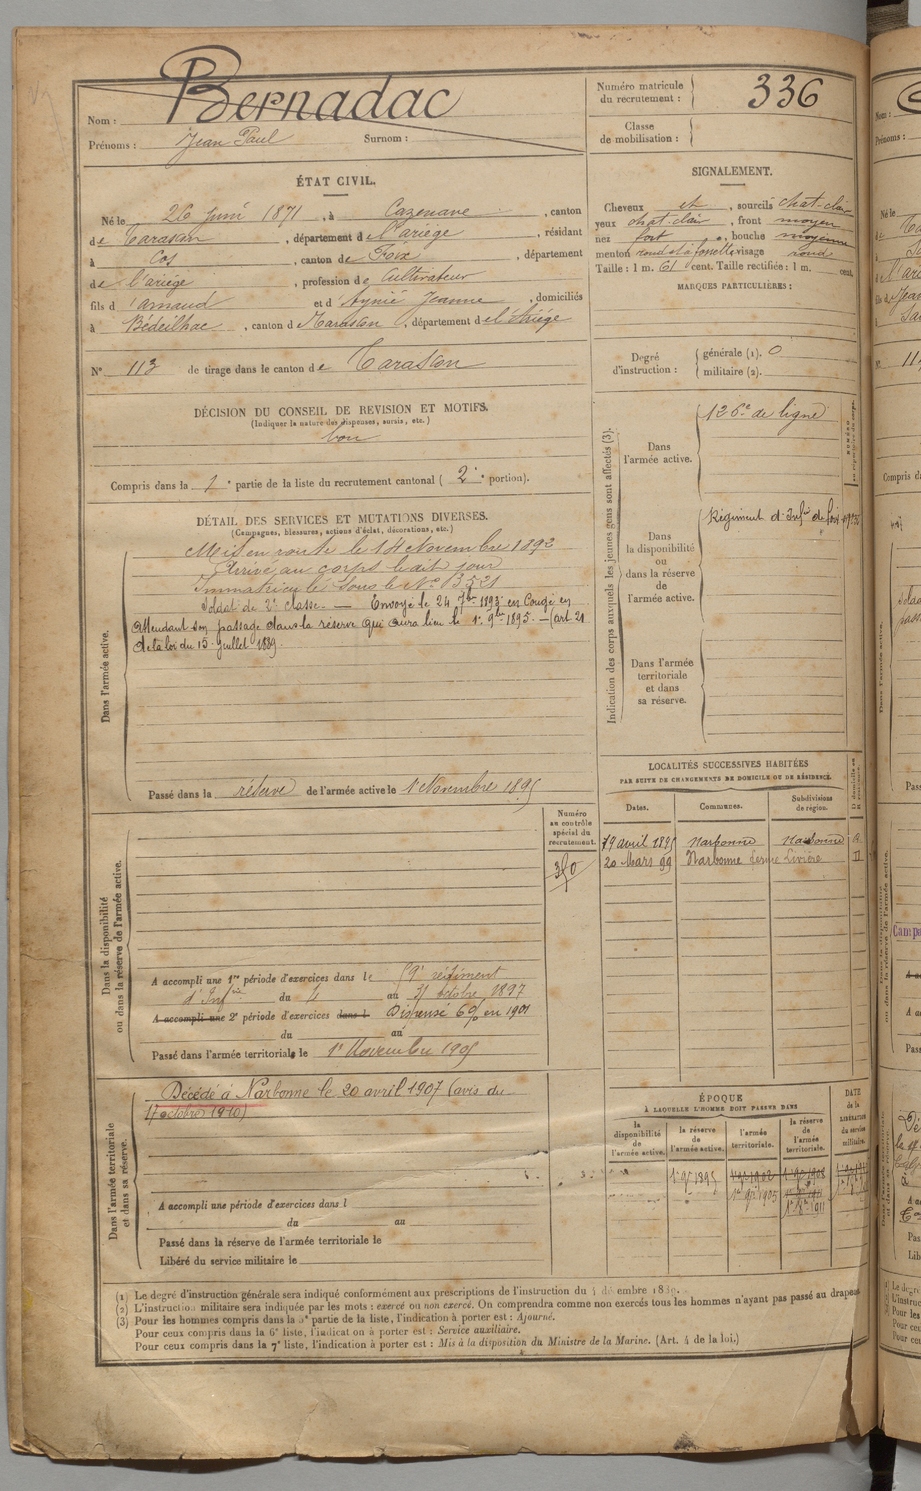 Nom : Bernadac
Prénoms : Jean Paul Surnom :
Numéro matricule du recrutement : 336
Classe de mobilisation :
ÉTAT CIVIL.
Né le 26 juin 1871, à Cazenave, canton
de Tarascon, département de l'ariège, résidant
à Cos, canton de Foix, département
de l'ariège, profession de Cultivateur
fils d'arnaud et d'Aynié Jeanne, domiciliés
à Bédeilhac, canton de Tarascon, département de l'Ariège
N° 113 de tirage dans le canton de Tarascon
SIGNALEMENT.
Cheveux et, sourcils chat. clair
yeux chat. clair, front moyen
nez fort, bouche moyenne
menton rond et à fossette visage rond
Taille : 1 m. 61 cent. Taille rectifiée : 1 m. cent.
MARQUES PARTICULIÈRES :
Degré d'instruction : générale (1). 0
militaire (2).
DÉCISION DU CONSEIL DE REVISION ET MOTIFS.
(Indiquer la nature des dispenses, sursis, etc.)
bon
Compris dans la 1e partie de la liste du recrutement cantonal (2e portion).
DÉTAIL DES SERVICES ET MUTATIONS DIVERSES.
(Campagnes, blessures, actions d'éclat, décorations, etc.)
Dans l'armée active.
Mis en route le 14 Novembre 1892
Arrivé au corps le dit jour
Immatriculé sous le N° 13521
Soldat de 2e classe. — Envoyé le 24 7bre 1893 en Congé en
attendant son passage dans la réserve qui aura lieu le 1er 9bre 1895. — (art 21
de la loi du 15 Juillet 1889.
Passé dans la réserve de l'armée active le 1er Novembre 1895
Indication des corps auxquels les jeunes gens sont affectés (3).
Dans l'armée active.
126e de ligne
Dans la disponibilité ou dans la réserve de l'armée active.
Régiment d'Infie de
Dans l'armée territoriale et dans sa réserve.
LOCALITÉS SUCCESSIVES HABITÉES
PAR SUITE DE CHANGEMENTS DE DOMICILE OU DE RÉSIDENCE.
Dates. Communes. Subdivisions de région.
19 avril 1895 Narbonne Narbonne R
20 Mars 99 Narbonne Livière D
Dans la disponibilité ou dans la réserve de l'armée active.
Numéro au contrôle spécial du recrutement.
350
A accompli une 1re période d'exercices dans le 59e régiment
d'Infie du 4 au 31 octobre 1897
A accompli une 2e période d'exercices dans l Dispensé 6% en 1901
du au
Passé dans l'armée territoriale le 1er Novembre 1905
Dans l'armée territoriale et dans sa réserve.
Décédé à Narbonne le 20 avril 1907 (avis du
17 octobre 1910)
A accompli une période d'exercices dans l
du au
Passé dans la réserve de l'armée territoriale le
Libéré du service militaire le
ÉPOQUE
À LAQUELLE L'HOMME DOIT PASSER DANS
la disponibilité de l'armée active.
la réserve de l'armée active.
l'armée territoriale.
la réserve de l'armée territoriale.
DATE de la LIBÉRATION du service militaire.
1er 9bre 1895
1er 9bre 1905
(1) Le degré d'instruction générale sera indiqué conformément aux prescriptions de l'instruction du décembre
(2) L'instruction militaire sera indiquée par les mots : exercé ou non exercé. On comprendra comme non exercés tous les hommes n'ayant pas passé au drapeau
(3) Pour les hommes compris dans la partie de la liste, l'indication à porter est : Ajourné.
Pour ceux compris dans la 6e liste, l'indication à porter est : Service auxiliaire.
Pour ceux compris dans la 7e liste, l'indication à porter est : Mis à la disposition du Ministre de la Marine. (Art. 4 de la loi.)